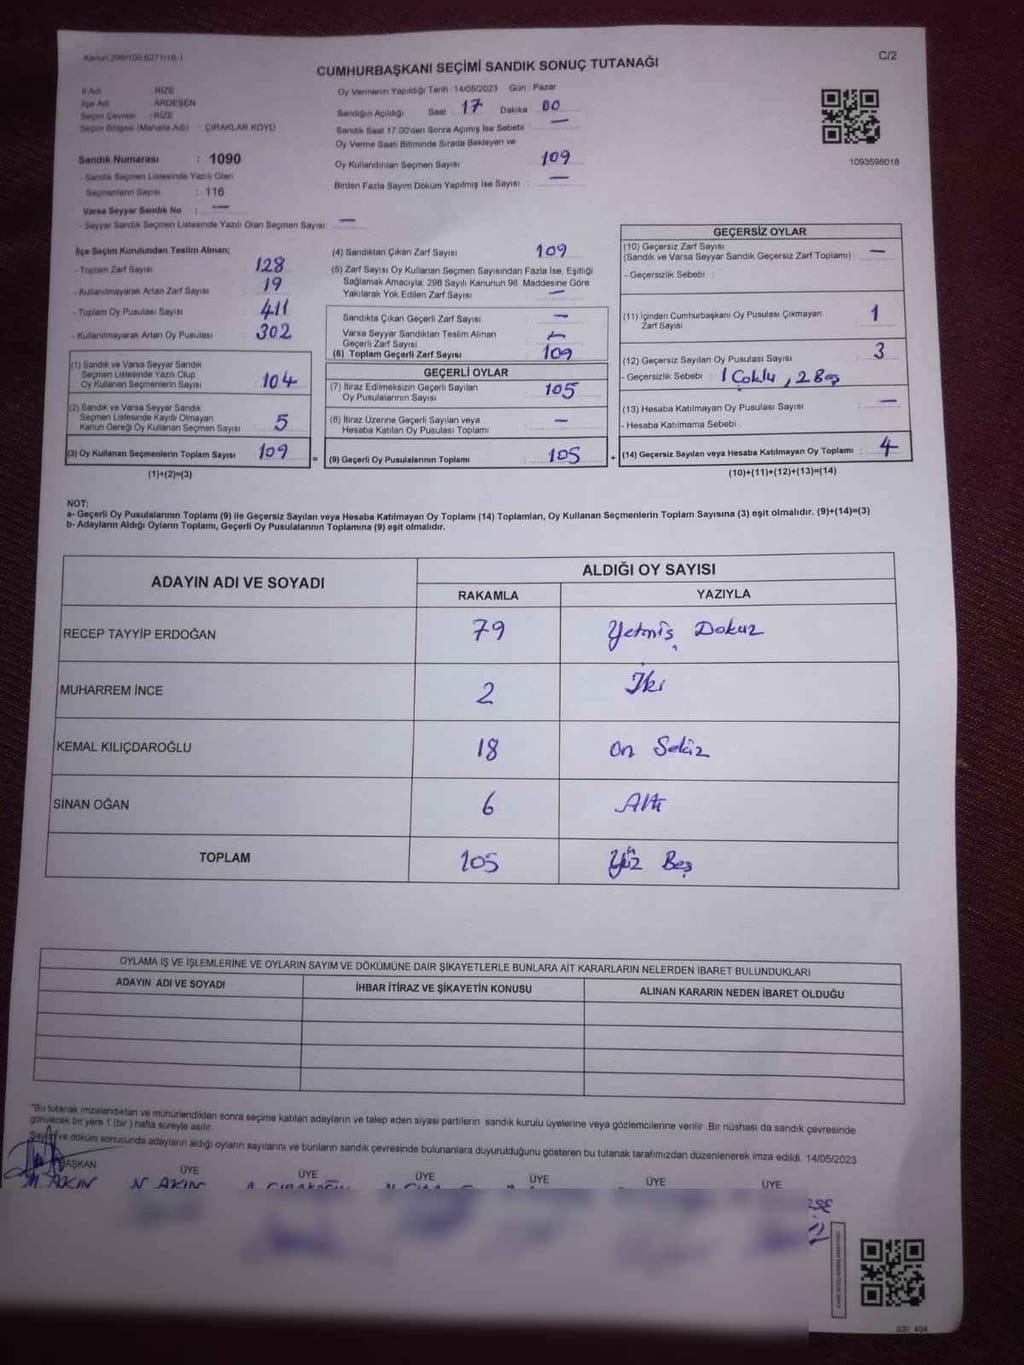 Kanun 298/105-6271/18-1
C/2
CUMHURBAŞKANI SEÇİMİ SANDIK SONUÇ TUTANAĞI
İl Adı : RİZE
İlçe Adı : ARDEŞEN
Seçim Çevresi : RİZE
Seçim Bölgesi (Mahalle Adı) : ÇIRAKLAR KÖYÜ
Sandık Numarası : 1090
- Sandık Seçmen Listesinde Yazılı Olan
Seçmenlerin Sayısı : 116
Varsa Seyyar Sandık No : —
- Seyyar Sandık Seçmen Listesinde Yazılı Olan Seçmen Sayısı: —
Oy Vermenin Yapıldığı Tarih :14/05/2023 Gün : Pazar
Sandığın Açıldığı Saat : 17 Dakika : 00
Sandık Saat 17:00'den Sonra Açılmış İse Sebebi : —
Oy Verme Saati Bitiminde Sırada Bekleyen ve
Oy Kullandırılan Seçmen Sayısı : 109
Birden Fazla Sayım Döküm Yapılmış İse Sayısı : —
1093598018
İlçe Seçim Kurulundan Teslim Alınan;
- Toplam Zarf Sayısı : 128
- Kullanılmayarak Artan Zarf Sayısı : 19
- Toplam Oy Pusulası Sayısı : 411
- Kullanılmayarak Artan Oy Pusulası : 302
(1) Sandık ve Varsa Seyyar Sandık
Seçmen Listesinde Yazılı Olup
Oy Kullanan Seçmenlerin Sayısı : 104
(2) Sandık ve Varsa Seyyar Sandık
Seçmen Listesinde Kayıtlı Olmayan
Kanun Gereği Oy Kullanan Seçmen Sayısı : 5
(3) Oy Kullanan Seçmenlerin Toplam Sayısı : 109
(1)+(2)=(3)
(4) Sandıktan Çıkan Zarf Sayısı : 109
(5) Zarf Sayısı Oy Kullanan Seçmen Sayısından Fazla İse, Eşitliği
Sağlamak Amacıyla; 298 Sayılı Kanunun 98. Maddesine Göre
Yakılarak Yok Edilen Zarf Sayısı : —
Sandıkta Çıkan Geçerli Zarf Sayısı : —
Varsa Seyyar Sandıktan Teslim Alınan
Geçerli Zarf Sayısı : —
(6) Toplam Geçerli Zarf Sayısı : 109
GEÇERLİ OYLAR
(7) İtiraz Edilmeksizin Geçerli Sayılan
Oy Pusulalarının Sayısı : 105
(8) İtiraz Üzerine Geçerli Sayılan veya
Hesaba Katılan Oy Pusulası Toplamı : —
= (9) Geçerli Oy Pusulalarının Toplamı : 105 +
GEÇERSİZ OYLAR
(10) Geçersiz Zarf Sayısı
(Sandık ve Varsa Seyyar Sandık Geçersiz Zarf Toplamı) : —
- Geçersizlik Sebebi :
(11) İçinden Cumhurbaşkanı Oy Pusulası Çıkmayan
Zarf Sayısı : 1
(12) Geçersiz Sayılan Oy Pusulası Sayısı : 3
- Geçersizlik Sebebi : 1 Çoklu, 2 Boş
(13) Hesaba Katılmayan Oy Pusulası Sayısı : —
- Hesaba Katılmama Sebebi :
(14) Geçersiz Sayılan veya Hesaba Katılmayan Oy Toplamı : 4
(10)+(11)+(12)+(13)=(14)
NOT:
a- Geçerli Oy Pusulalarının Toplamı (9) ile Geçersiz Sayılan veya Hesaba Katılmayan Oy Toplamı (14) Toplamları, Oy Kullanan Seçmenlerin Toplam Sayısına (3) eşit olmalıdır. (9)+(14)=(3)
b- Adayların Aldığı Oyların Toplamı, Geçerli Oy Pusulalarının Toplamına (9) eşit olmalıdır.
ADAYIN ADI VE SOYADI
ALDIĞI OY SAYISI
RAKAMLA YAZIYLA
RECEP TAYYİP ERDOĞAN 79 Yetmiş Dokuz
MUHARREM İNCE 2 İki
KEMAL KILIÇDAROĞLU 18 On Sekiz
SİNAN OĞAN 6 Altı
TOPLAM 105 Yüz Beş
OYLAMA İŞ VE İŞLEMLERİNE VE OYLARIN SAYIM VE DÖKÜMÜNE DAİR ŞİKAYETLERLE BUNLARA AİT KARARLARIN NELERDEN İBARET BULUNDUKLARI
ADAYIN ADI VE SOYADI İHBAR İTİRAZ VE ŞİKAYETİN KONUSU ALINAN KARARIN NEDEN İBARET OLDUĞU
"Bu tutanak imzalandıktan ve mühürlendikten sonra seçime katılan adayların ve talep eden siyasi partilerin sandık kurulu üyelerine veya gözlemcilerine verilir. Bir nüshası da sandık çevresinde
görülecek bir yere 1 (bir) hafta süreyle asılır.
Sayım ve döküm sonucunda adayların aldığı oyların sayılarını ve bunların sandık çevresinde bulunanlara duyurulduğunu gösteren bu tutanak tarafımızdan düzenlenerek imza edildi. 14/05/2023
BAŞKAN ÜYE ÜYE ÜYE ÜYE ÜYE ÜYE
M. AKIN N AKIN